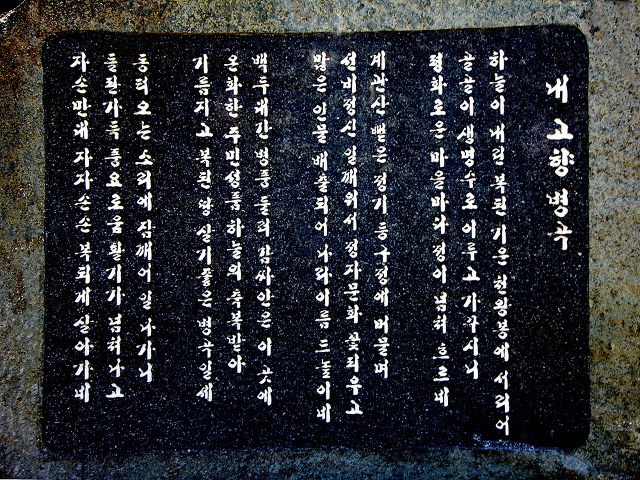 내 고향 병곡
하늘이 내린 복된 기운 천왕봉에 서리어
골골이 생명수로 이루고 가꾸시니
평화로운 마을마다 정이 넘쳐 흐르네
제관산 뻗은 정기 등구정에 머물며
선비정신 일깨워서 정자문화 꽃피우고
맑은 인물 배출되어 나라이름 드높이네
백두대간 병풍 둘러 감싸안은 이 곳에
온화한 주민성품 하늘의 축복받아
기름지고 복된 땅 살기좋은 병곡일세
동터오는 소리에 잠깨어 일 나가니
들판가득 풍요로움 활기가 넘쳐나고
자손만대 자자손손 복되게 살아가네